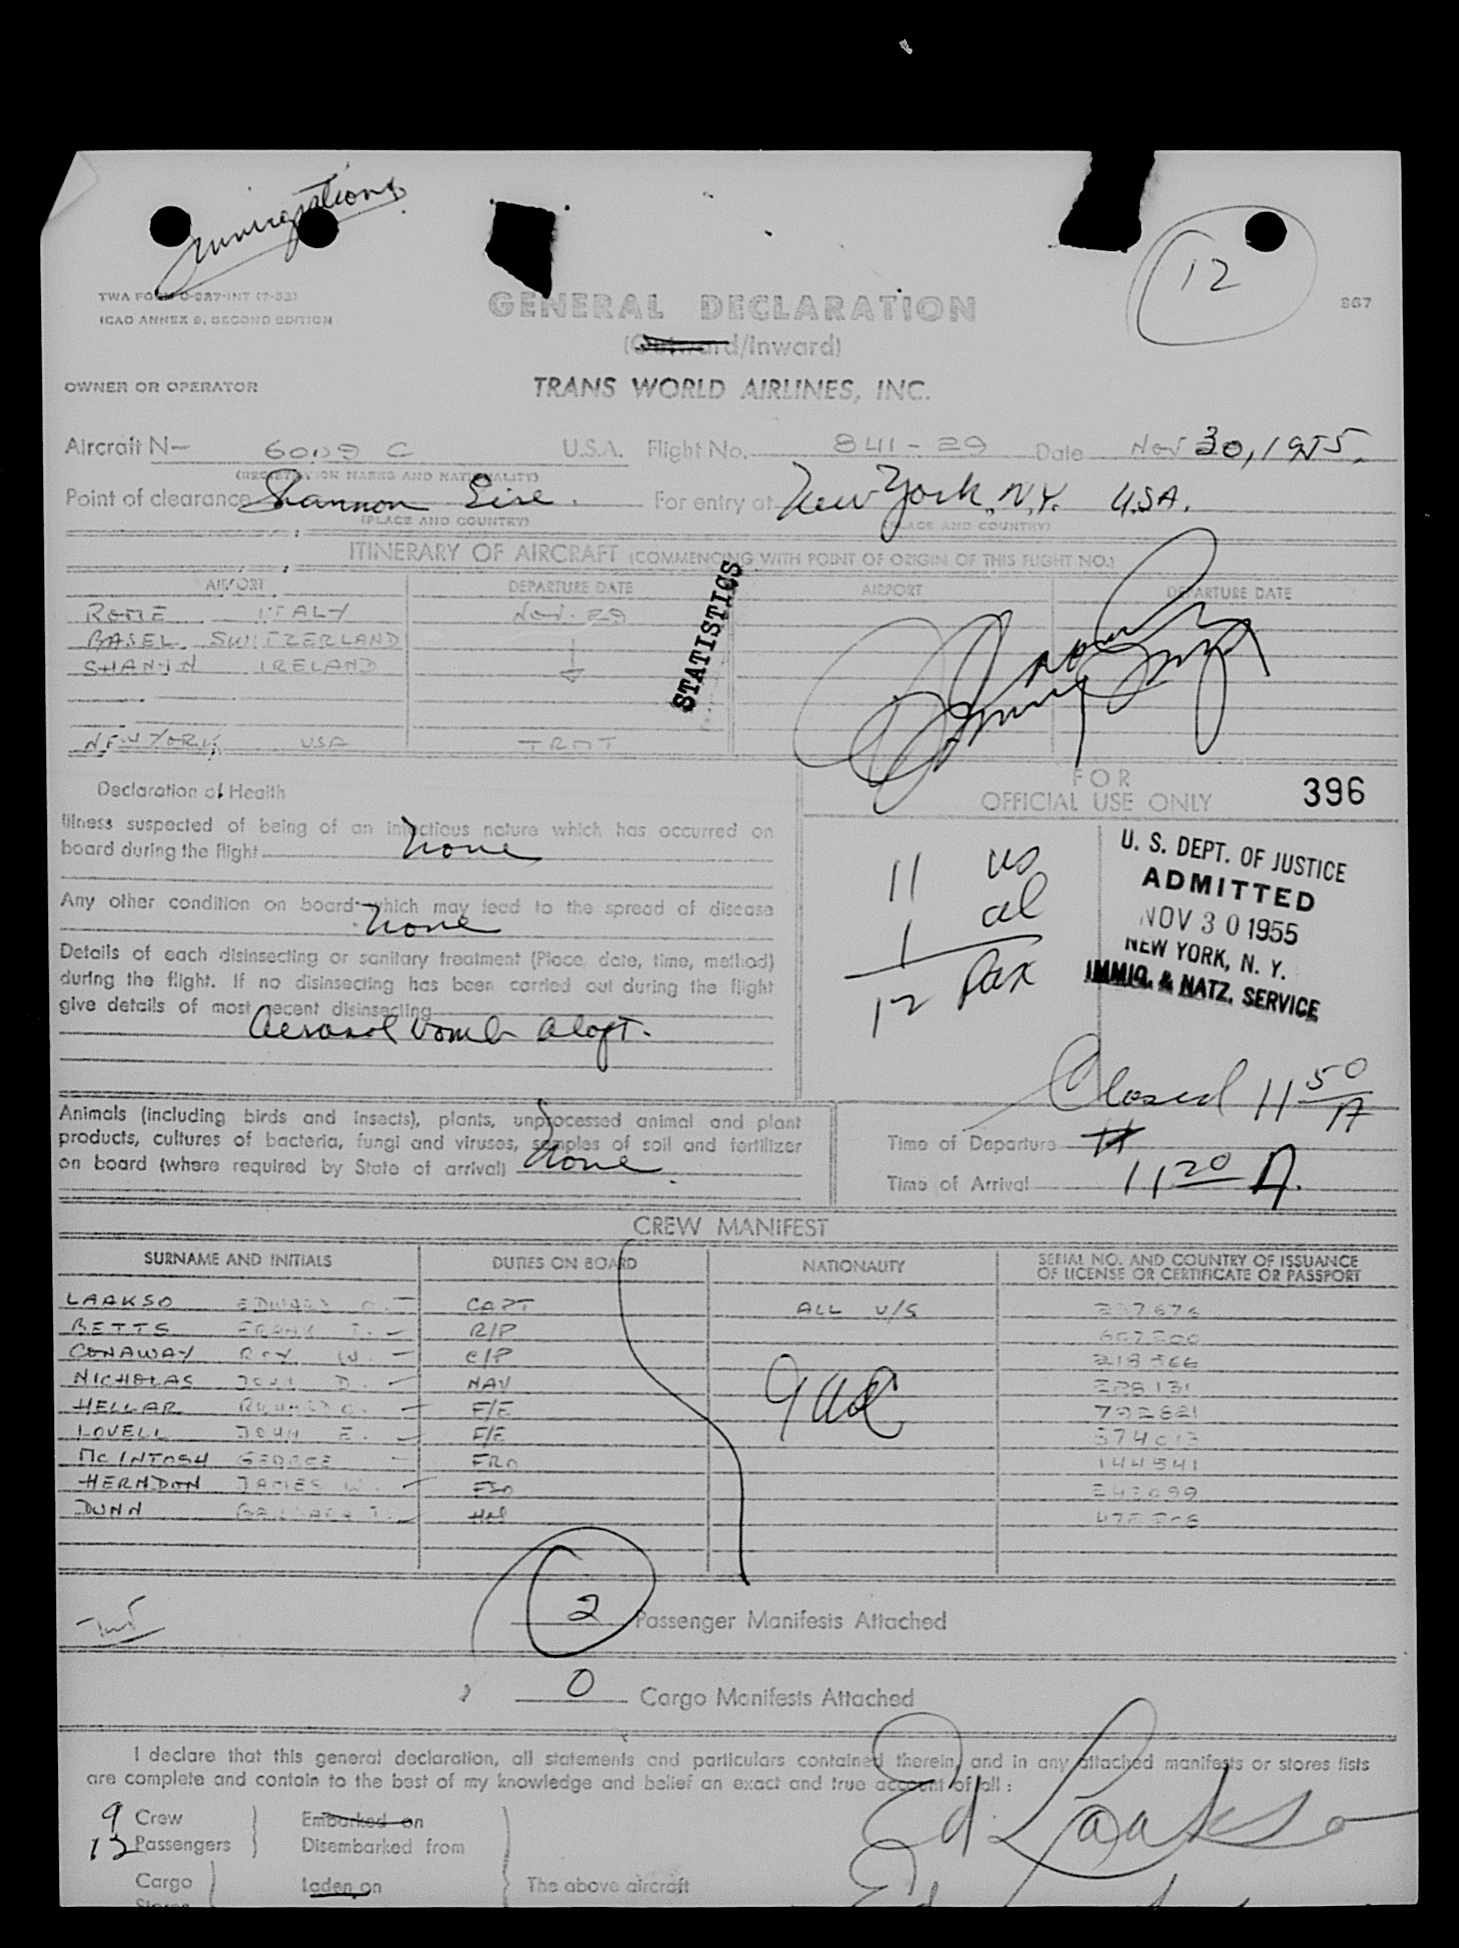 Immigration
12
TWA FORM O-887-INT (7-53)
ICAO ANNEX 9, SECOND EDITION
GENERAL DECLARATION
867
(Outward/Inward)
OWNER OR OPERATOR
TRANS WORLD AIRLINES, INC.
Aircraft N- 6009 C U.S.A. Flight No. 841-29 Date Nov 30, 1955.
(REGISTRATION MARKS AND NATIONALITY)
Point of clearance Shannon Eire. For entry at New York, N.Y. U.S.A.
(PLACE AND COUNTRY) (PLACE AND COUNTRY)
ITINERARY OF AIRCRAFT (COMMENCING WITH POINT OF ORIGIN OF THIS FLIGHT NO.)
AIRPORT DEPARTURE DATE AIRPORT DEPARTURE DATE
ROME ITALY Nov. 29
BASEL SWITZERLAND
SHANNN IRELAND
NEW YORK, USA TRMT
STATISTICS
Declaration of Health
FOR
OFFICIAL USE ONLY
396
Illness suspected of being of an infectious nature which has occurred on
board during the flight None
Any other condition on board which may lead to the spread of disease
None
Details of each disinsecting or sanitary treatment (Place, date, time, method)
during the flight. If no disinsecting has been carried out during the flight
give details of most recent disinsecting
Aerosol bomb aloft.
11 US
1 al
12 Pax
U. S. DEPT. OF JUSTICE
ADMITTED
NOV 30 1955
NEW YORK, N. Y.
IMMIG. & NATZ. SERVICE
Closed 11 50 A
Animals (including birds and insects), plants, unprocessed animal and plant
products, cultures of bacteria, fungi and viruses, samples of soil and fertilizer
on board (where required by State of arrival) None
Time of Departure
Time of Arrival 11 20 A.
CREW MANIFEST
SURNAME AND INITIALS DUTIES ON BOARD NATIONALITY SERIAL NO. AND COUNTRY OF ISSUANCE
OF LICENSE OR CERTIFICATE OR PASSPORT
LAAKSO EDWARD CAPT ALL U/S
BETTS FRANK R/P
CONAWAY ROY W. C/P
NICHOLAS JOHN D. NAV
HELLAR F/E
LOVELL JOHN E. F/E 374013
McINTOSH GEORGE FRO 144541
HERNDON JAMES W. FSO
DUNN BARBARA J.
9 USC
2 Passenger Manifests Attached
0 Cargo Manifests Attached
I declare that this general declaration, all statements and particulars contained therein, and in any attached manifests or stores lists
are complete and contain to the best of my knowledge and belief an exact and true account of all:
Ed Laakso
9 Crew Embarked on
12 Passengers Disembarked from
Cargo Laden on The above aircraft
Stores